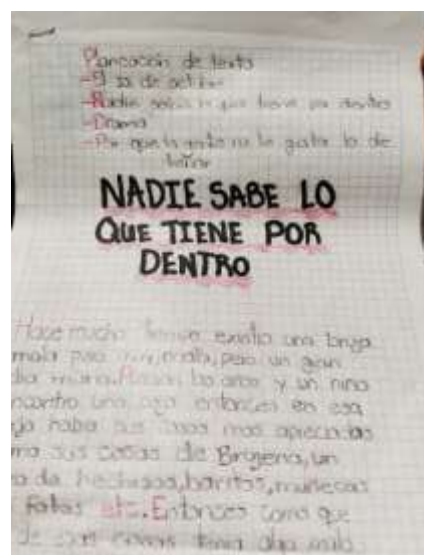 Planeación de texto
-9 de octubre
-Nadie sabe lo que tiene por dentro
-Drama
-Por que la gente no le gusta lo de
NADIE SABE LO
QUE TIENE POR
DENTRO
Hace mucho tiempo existio una bruja
mala pero muy mala, pero un gran
dia murio. Pasaron los años y un niño
encontro una caja entonces en esa
caja habia sus cosas mas apreciadas
como sus cosas de Brujeria, un
de hechisos, baritas, muñecas
Fotos etc. Entonces como que
de esas cosas tenia algo malo